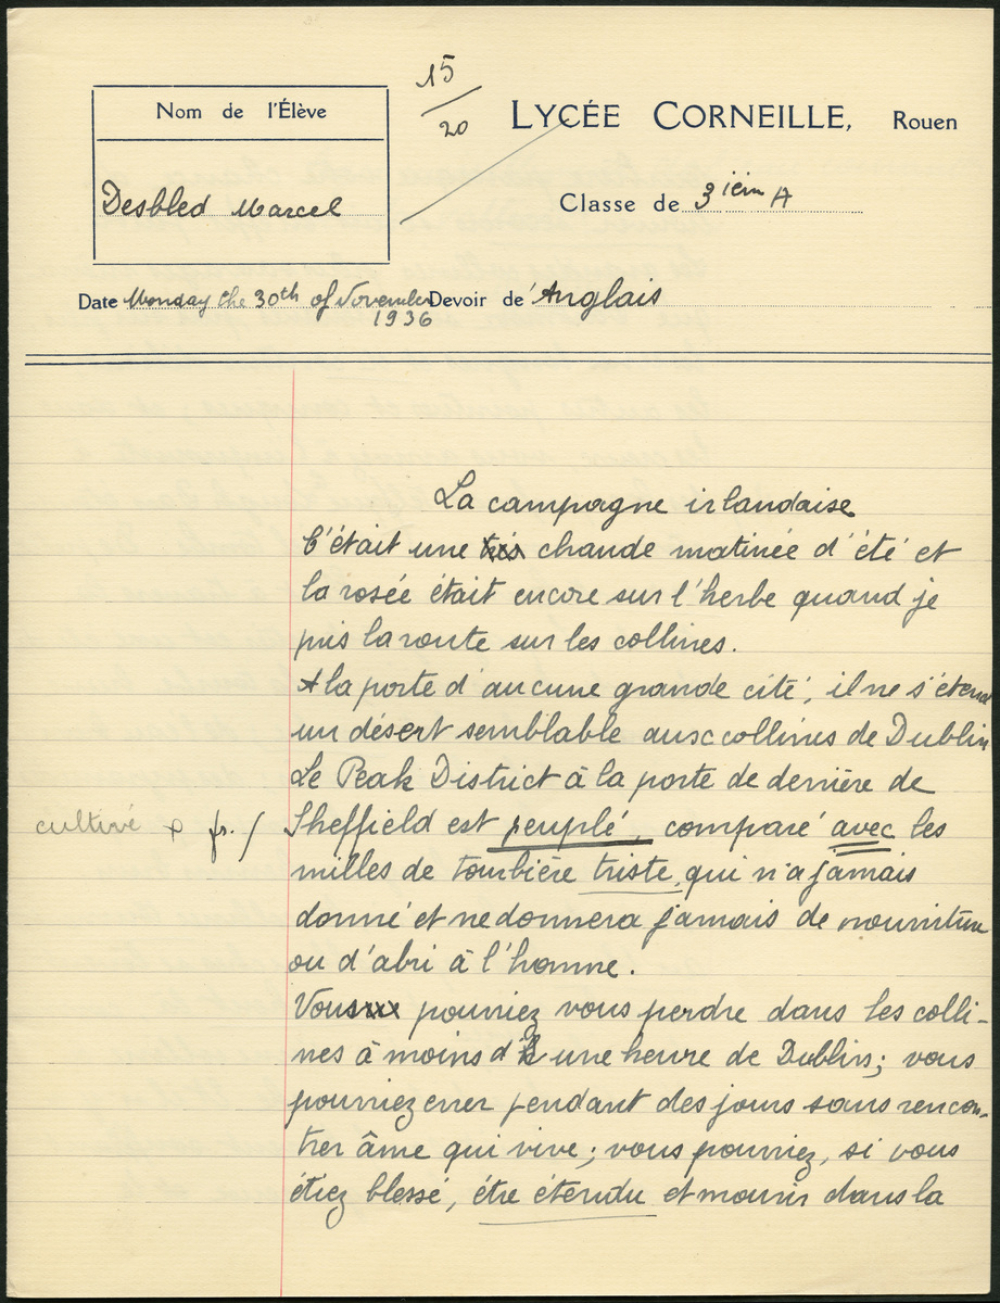 15
/
20
Nom de l'Élève
LYCÉE CORNEILLE, Rouen
Desbled Marcel
Classe de 3ièm A
Date Monday the 30th of November Devoir de Anglais
1936
La campagne irlandaise
C'était une très chaude matinée d'été et
la rosée était encore sur l'herbe quand je
pris la route sur les collines.
A la porte d'aucune grande cité, il ne s'étend
un désert semblable aux collines de Dublin
Le Peak District à la porte de derrière de
cultivé fr. / Sheffield est peuplé, comparé avec les
milles de tourbière triste, qui n'a jamais
donné et ne donnera jamais de nourriture
ou d'abri à l'homme.
Vous pourriez vous perdre dans les colli-
nes à moins d'une heure de Dublin; vous
pourriez errer pendant des jours sans rencon-
trer âme qui vive; vous pourriez, si vous
étiez blessé, être étendu et mourir dans la